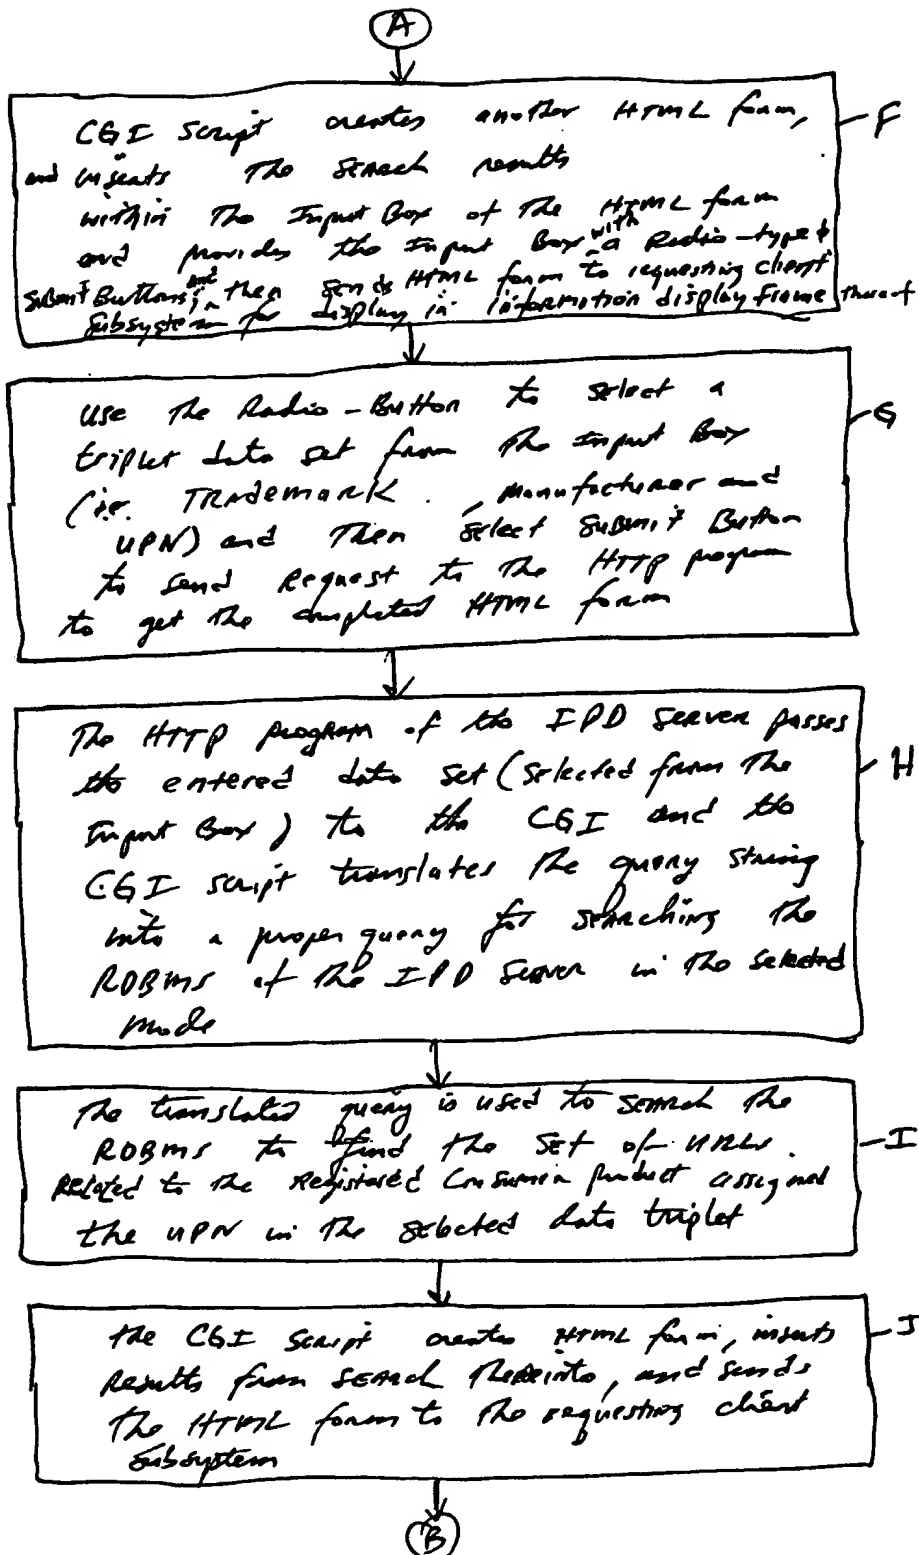 A
CGI script creates another HTML form,
and inserts the search results
within the Input Box of the HTML form
and provides the Input Box with a Radio-type &
Submit Buttons, and then sends HTML form to requesting client
subsystem for display in information display frame thereof
F
use the Radio-Button to select a
triplet data set from the Input Box
(i.e. Trademark, manufacturer and
UPN) and then select Submit Button
to send Request to the HTTP program
to get the completed HTML form
G
The HTTP program of the IPD Server passes
the entered data set (selected from the
Input Box) to the CGI and the
CGI script translates the query string
into a proper query for searching the
RDBMS of the IPD Server in the selected
mode
H
The translated query is used to search the
RDBMS to find the set of URLs
Related to the Registered Consumer product assigned
the UPN in the selected data triplet
I
the CGI script creates HTML form, inserts
Results from search thereinto, and sends
the HTML form to the requesting client
subsystem
J
B